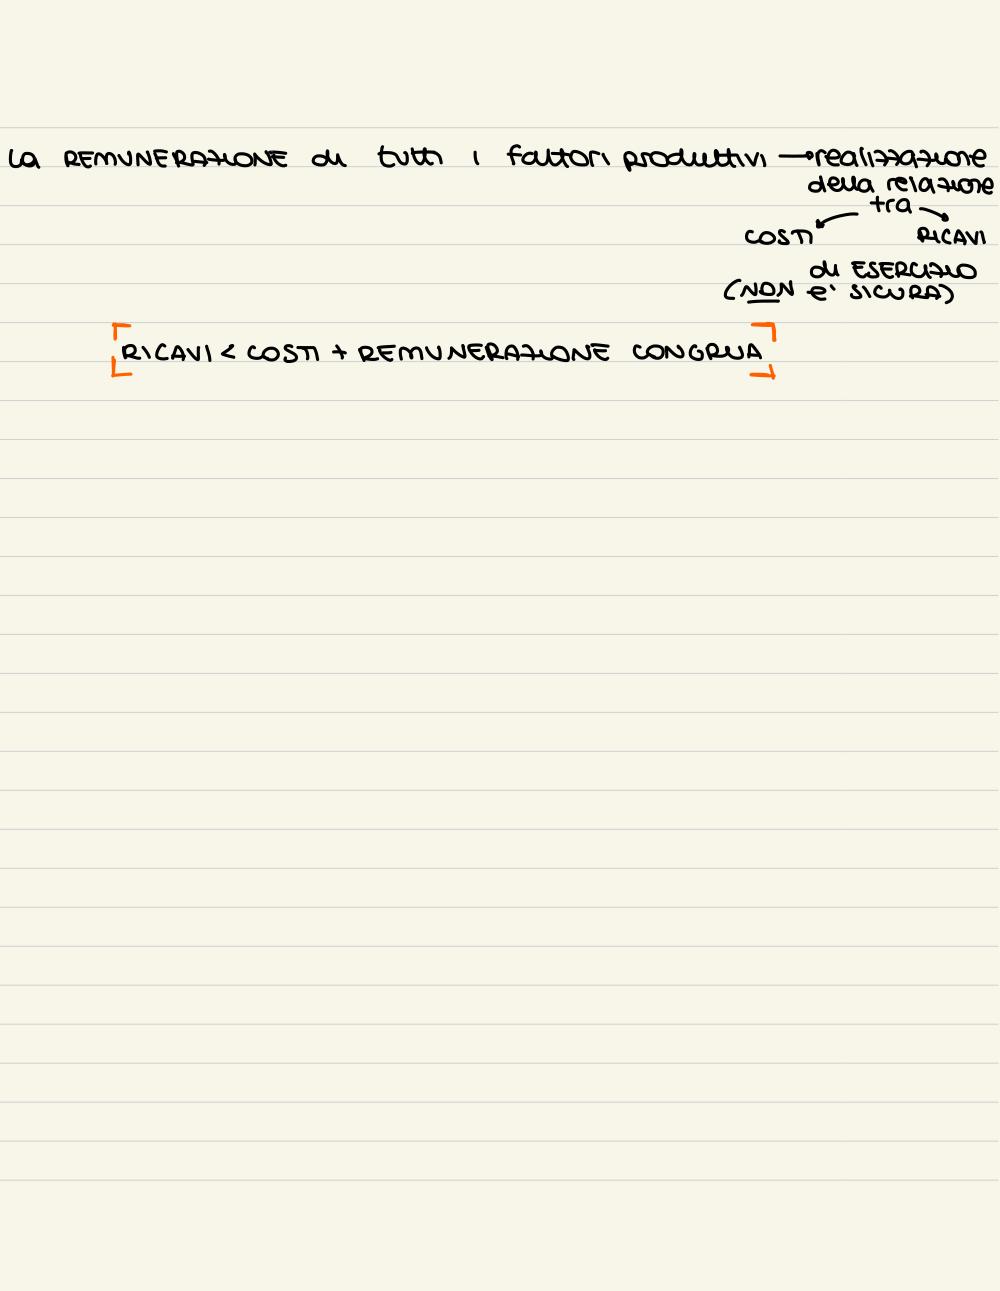 La REMUNERAZIONE di tutti i fattori produttivi → realizzazione
della relazione
tra
COSTI RICAVI
di ESERCIZIO
(NON e' SICURA)
RICAVI < COSTI + REMUNERAZIONE CONGRUA